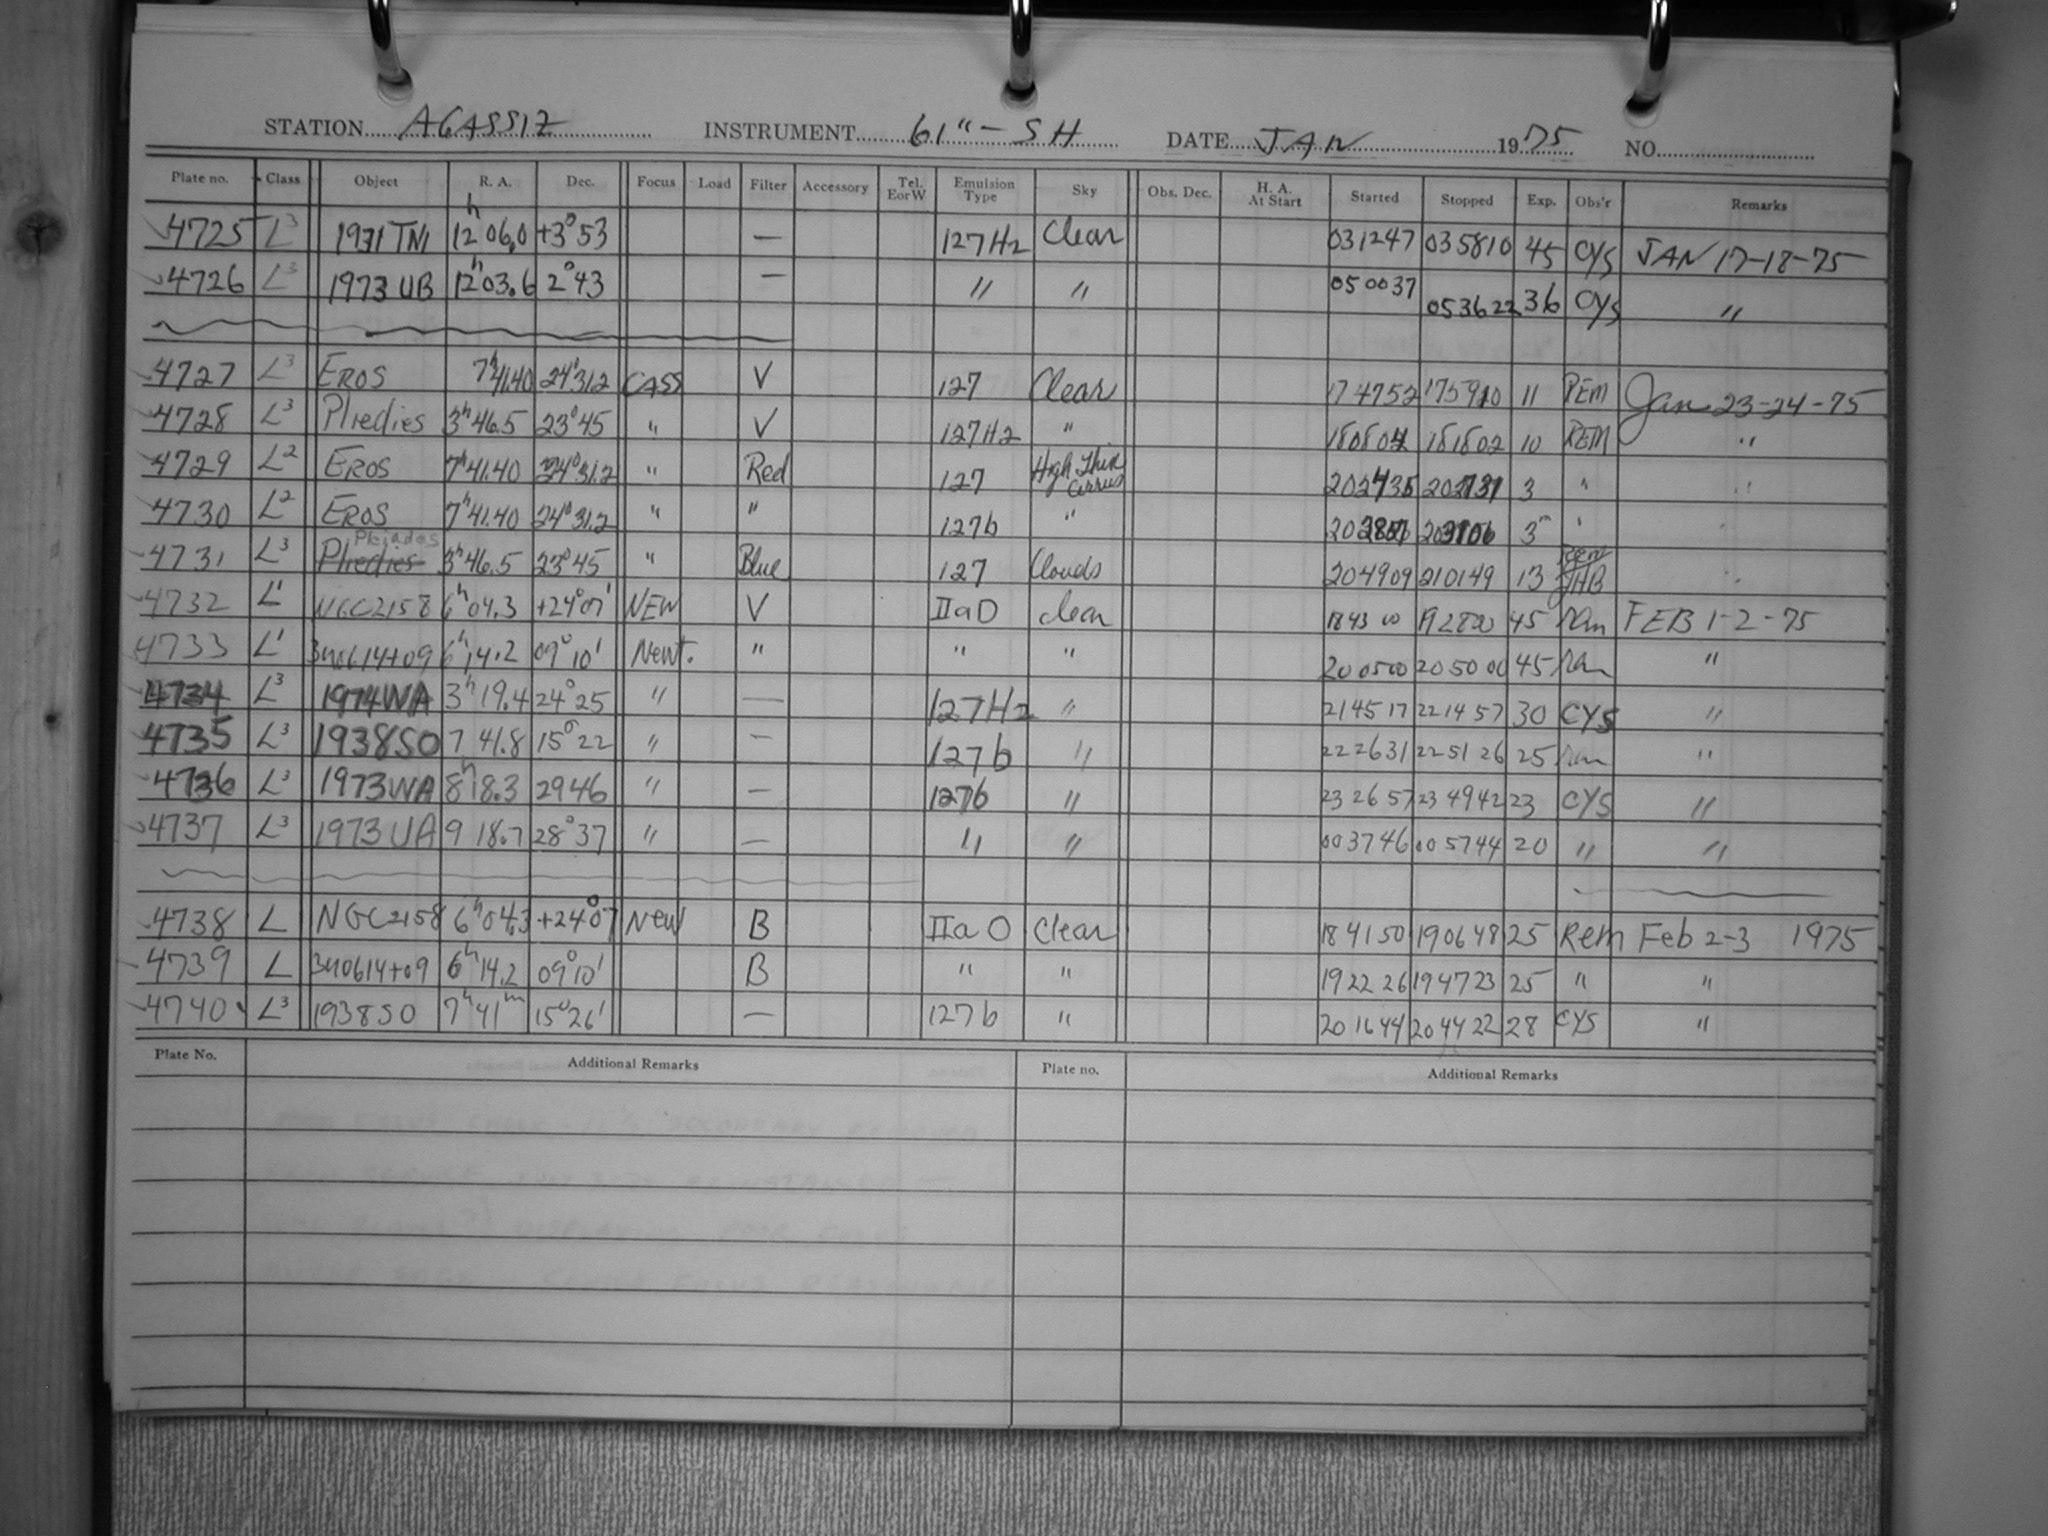 STATION AGASSIZ INSTRUMENT 61"-SH DATE JAN 1975 NO.
Plate no. Class Object R. A. Dec. Focus Load Filter Accessory Tel. EorW Emulsion Type Sky Obs. Dec. H. A. At Start Started Stopped Exp. Obs'r Remarks
4725 L3 1931 TN1 12h 06.0 +3°53 — 127H2 Clear 031247 035810 45 CYS JAN 17-18-75
4726 L3 1973 UB 12h03.6 2°43 — " " 050037 053622 36 CYS "
4727 L3 EROS 7h41.40 24°31.2 CASS V 127 Clear 174752 175910 11 REM Jan 23-24-75
4728 L3 Pliedies 3h46.5 23°45 " V 127H2 " 180802 181802 10 REM "
4729 L2 EROS 7h41.40 24°31.2 " Red 127 High Thin Cirrus 202435 202731 3 " "
4730 L2 EROS 7h41.40 24°31.2 " " 127b " 3m "
4731 L3 Pliedies Pleiades 3h46.5 23°45 " Blue 127 Clouds 204909 210149 13 Rem JHB "
4732 L1 NGC2158 6h04.3 +24°07' NEW V IIaD clear 184300 192800 45 ram FEB 1-2-75
4733 L1 3U0614+09 6h14.2 09°10' Newt. " " " 200500 205000 45 ram "
4734 L3 1974WA 3h19.4 24°25 " — 127H2 " 214517 221457 30 CYS "
4735 L3 1938SO 7 41.8 15°22 " — 127b " 222631 225126 25 ram "
4736 L3 1973WA 8h18.3 2946 " — 127b " 232657 234942 23 CYS "
4737 L3 1973UA 9 18.7 28°37 " — " " 003746 005744 20 " "
4738 L NGC2158 6h04.3 +24°07 New B IIaO Clear 184150 190648 25 Rem Feb 2-3 1975
4739 L 3U0614+09 6h14.2 09°10' B " " 192226 194723 25 " "
4740 L3 1938SO 7h41m 15°26' — 127b " 201644 204422 28 CYS "
Plate No. Additional Remarks Plate no. Additional Remarks